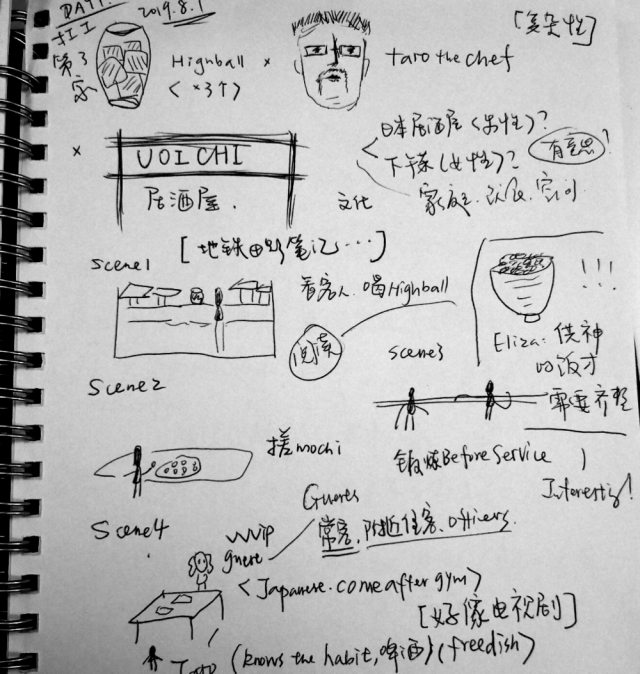 DAY1. 2019.8.1
打工
第3家
[复杂性]
Highball × taro the chef
< ×3个>
× UOICHI
居酒屋.
文化
日本居酒屋(男性)?
下午茶(女性)?
有意思!
家庭
[地铁田野笔记...]
Scene1
看客人.喝Highball
阅读
!!!
Eliza: 供神
的饭才
需要齐整
Interesting!
Scene2
搓mochi
Scene3
锻炼Before Service
Scene4
Guests
常客.附近住客.others.
VVVip
guest
<Japanese.come after gym>
[好像电视剧]
Taro (knows the habit,啤酒)(freedish)